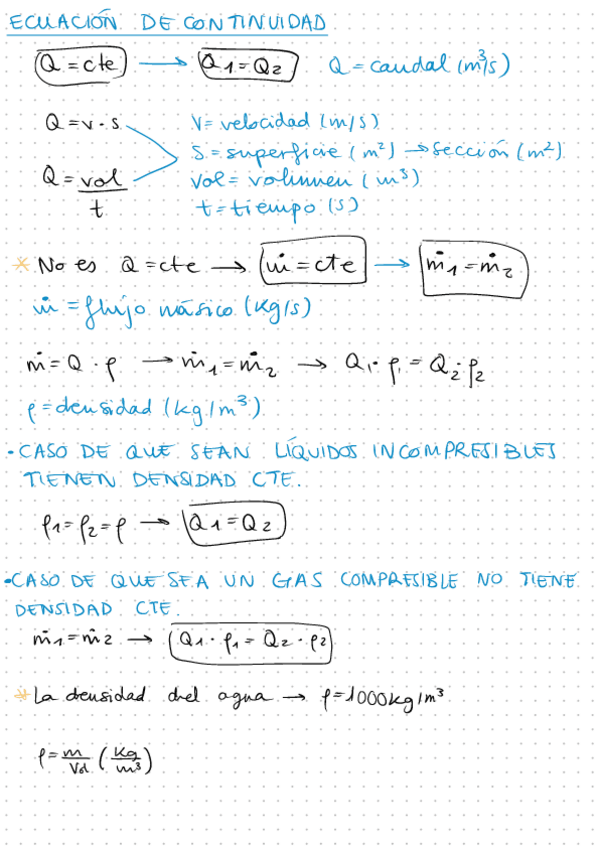 ECUACIÓN DE CONTINUIDAD
Q = cte → Q1 = Q2 Q = caudal (m³/s)
Q = v · s V = velocidad (m/s)
S = superficie (m²) → sección (m²)
Q = vol/t Vol = volumen (m³)
t = tiempo (s)
* No es Q = cte → ṁ = cte → ṁ1 = ṁ2
ṁ = flujo másico (kg/s)
ṁ = Q · ρ → ṁ1 = ṁ2 → Q1 · ρ1 = Q2 · ρ2
ρ = densidad (kg/m³)
· CASO DE QUE SEAN LÍQUIDOS INCOMPRESIBLES
TIENEN DENSIDAD CTE.
ρ1 = ρ2 = ρ → Q1 = Q2
· CASO DE QUE SEA UN GAS COMPRESIBLE NO TIENE
DENSIDAD CTE.
ṁ1 = ṁ2 → Q1 · ρ1 = Q2 · ρ2
* La densidad del agua → ρ = 1000 kg/m³
ρ = m/Vol (Kg/m³)